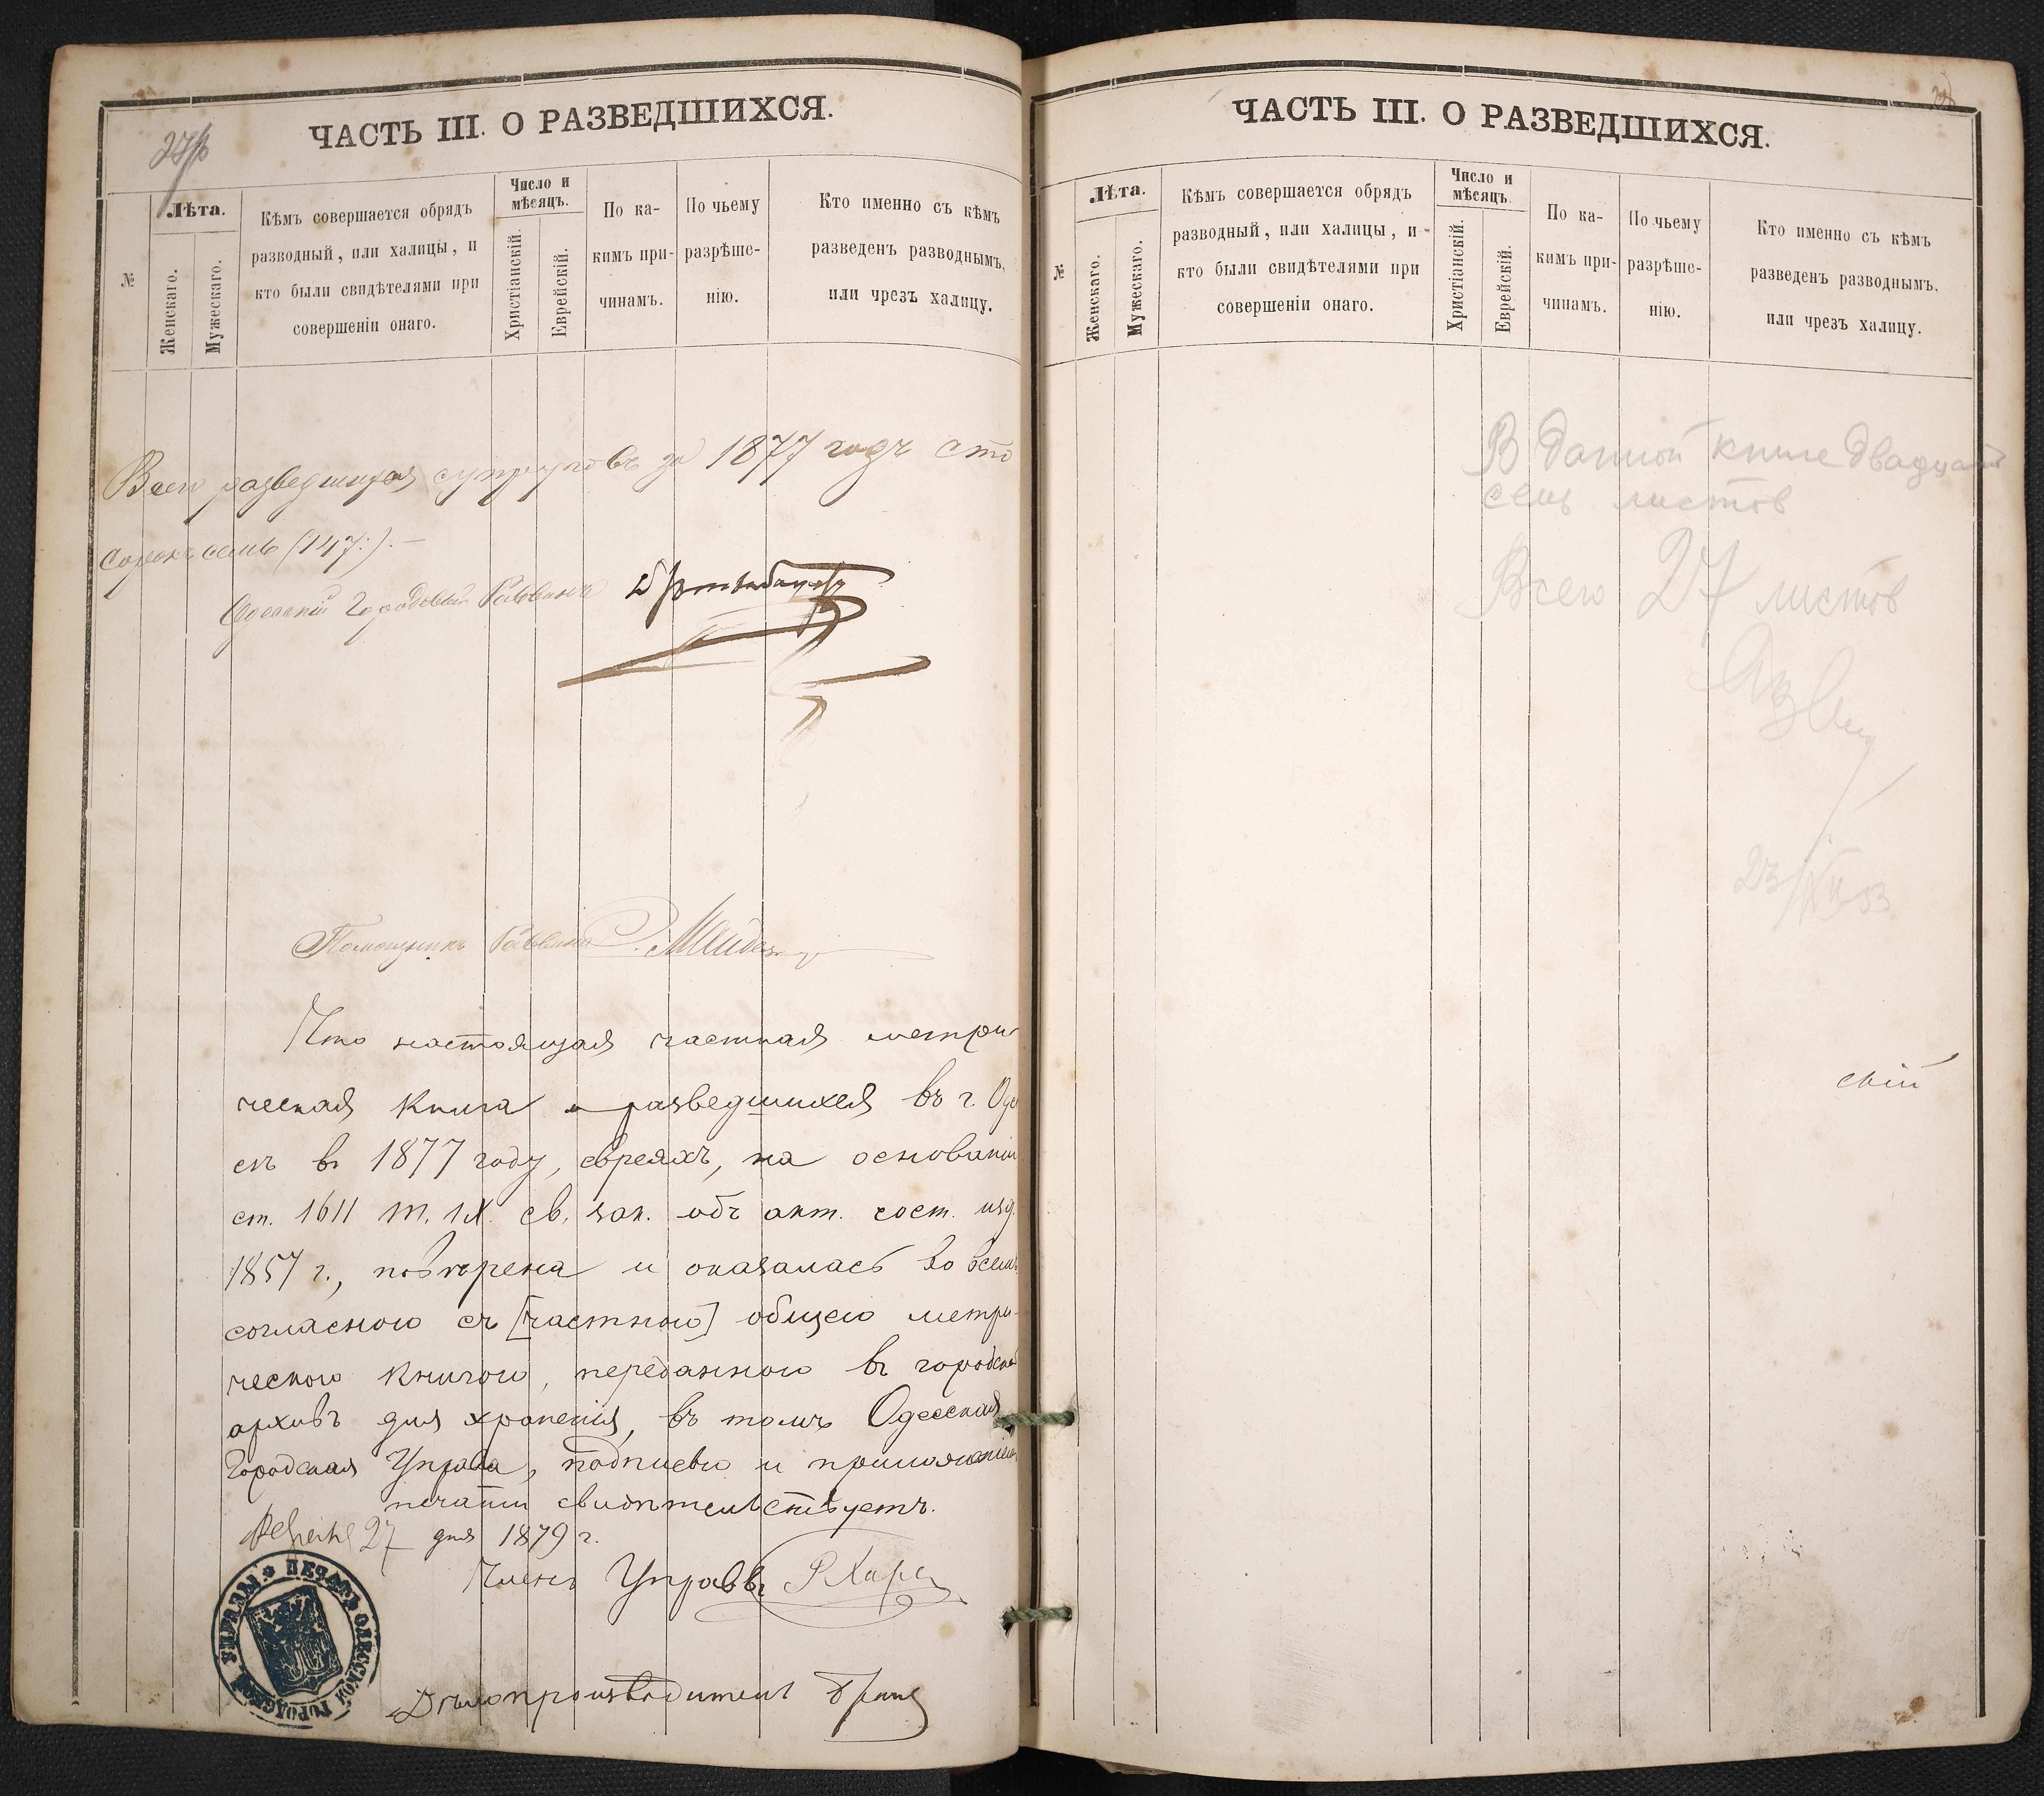 ЧАСТЬ III. О РАЗВЕДШИХСЯ.
№
Лѣта.
Женскаго.
Мужескаго.
Кѣмъ совершается обрядъ
разводный, или халицы, и
кто были свидѣтелями при
совершеніи онаго.
Число и
мѣсяцъ.
Христіанскій.
Еврейскій.
По ка-
кимъ при-
чинамъ.
По чьему
разрѣше-
нію.
Кто именно съ кѣмъ
разведенъ разводнымъ,
или чрезъ халицу.
Всего разведшихся супруговъ за 1877 годъ сто
сорокъ семь (147). —
Одесскій Городовой Раввинъ
Помощникъ Раввина
Что настоящая частная метри
ческая книга о разведшихся въ г. Оде
съ въ 1877 году, евреяхъ, на основаніи
ст. 1611 т. IX. св. зак. объ акт. сост. изд.
1857 г., повѣрена и оказалась во всемъ
согласною съ [частною] общею метри-
ческою книгою, переданною въ городской
архивъ для храненія, въ томъ Одесская
Городская Управа, подписью и приложеніемъ
печати свидѣтельствуетъ.
27 дня 1879 г.
Членъ Управы
ПЕЧАТЬ ОДЕССКОЙ ГОРОДСКОЙ УПРАВЫ
Дѣлопроизводитель
ЧАСТЬ III. О РАЗВЕДШИХСЯ.
№
Лѣта.
Женскаго.
Мужескаго.
Кѣмъ совершается обрядъ
разводный, или халицы, и
кто были свидѣтелями при
совершеніи онаго.
Число и
мѣсяцъ.
Христіанскій.
Еврейскій.
По ка-
кимъ при-
чинамъ.
По чьему
разрѣше-
нію.
Кто именно съ кѣмъ
разведенъ разводнымъ,
или чрезъ халицу.
В данной книге двадцать
семь листов
Всего 27 листов
скій